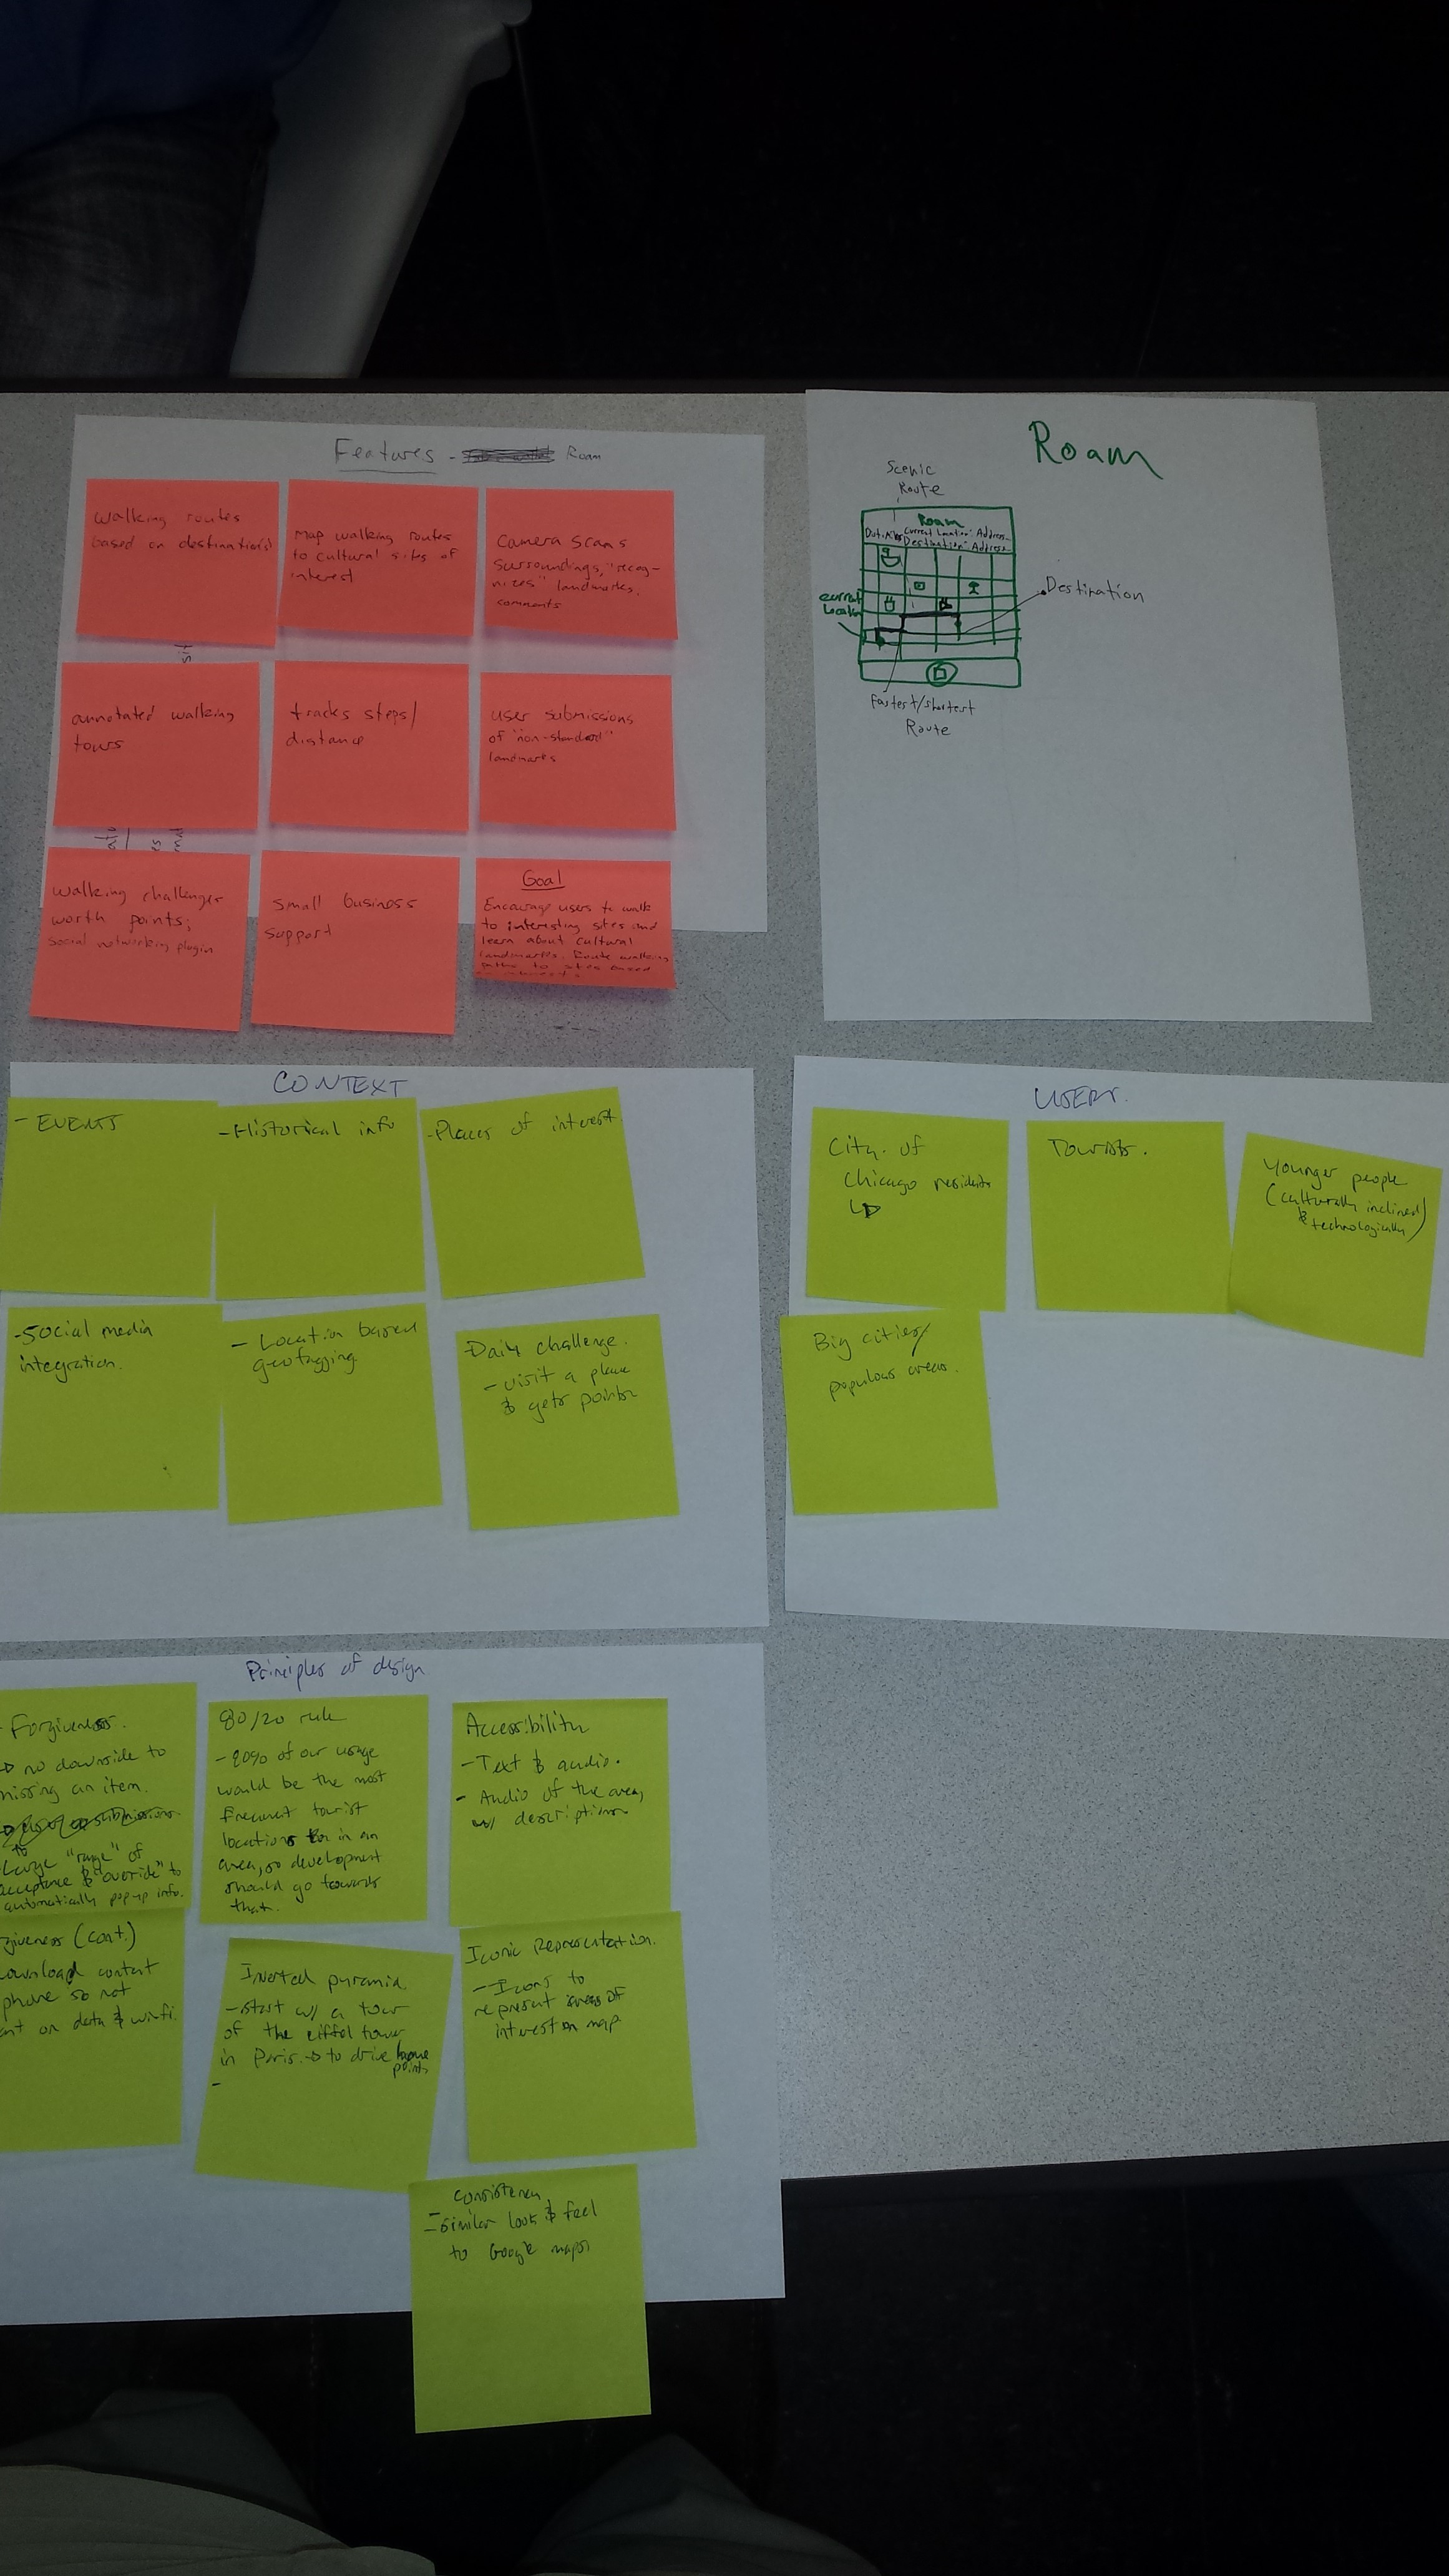 Features - Roam
walking routes
based on destination(s)
Map walking routes
to cultural sites of
interest
Camera scans
surroundings, "recog-
nizes" landmarks,
comments
annotated walking
tours
tracks steps/
distance
user submissions
of "non-standard"
landmarks
walking challenges
worth points;
social networking plugin
small business
support
Goal
Encourage users to walk
to interesting sites and
learn about cultural
landmarks. Route walking
paths to sites based
Roam
Scenic
Route
Roam
Current Location: Address
Destination: Address
Current
Location
Destination
Fastest/shortest
Route
CONTEXT
- EVENTS
- Historical info
- Places of interest.
- Social media
integration.
- Location based
geotagging
Daily challenge.
- visit a place
& gets points
USERS.
City of
Chicago residents
Tourists.
Younger people
(culturally inclined)
& technologically
Big cities/
populous areas.
Principles of design
- Forgiveness.
no downside to
missing an item.
Large "range" of
acceptance & "override" to
automatically pop up info.
80/20 rule
- 80% of our usage
would be the most
frequent tourist
locations in an
area, so development
should go towards
that.
Accessibility
- Text & audio.
- Audio of the area,
w/ descriptions
giveness (cont.)
ownload content
phone so not
ant on data & wifi.
Inverted pyramid.
- start w/ a tour
of the eiffel tower
in Paris. → to drive home
points
-
Iconic Representation.
- Icons to
represent areas of
interest on map
Consistency
- similar look & feel
to Google maps